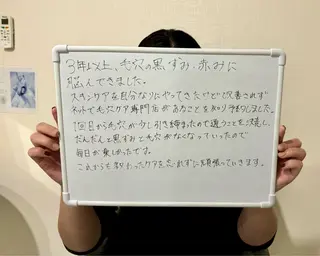 3年以上、毛穴の黒ずみ・赤みに
悩んできました。
スキンケアを自分なりにやってきたけど改善されず
ネットで毛穴ケア専門店があることを知り予約しました。
1回目から毛穴が少し引き締まったので通うことを決意し、
だんだんと黒ずみと毛穴がなくなっていったので
毎日が楽しかったです。
これからも教わったケアを忘れずに頑張っていきます。